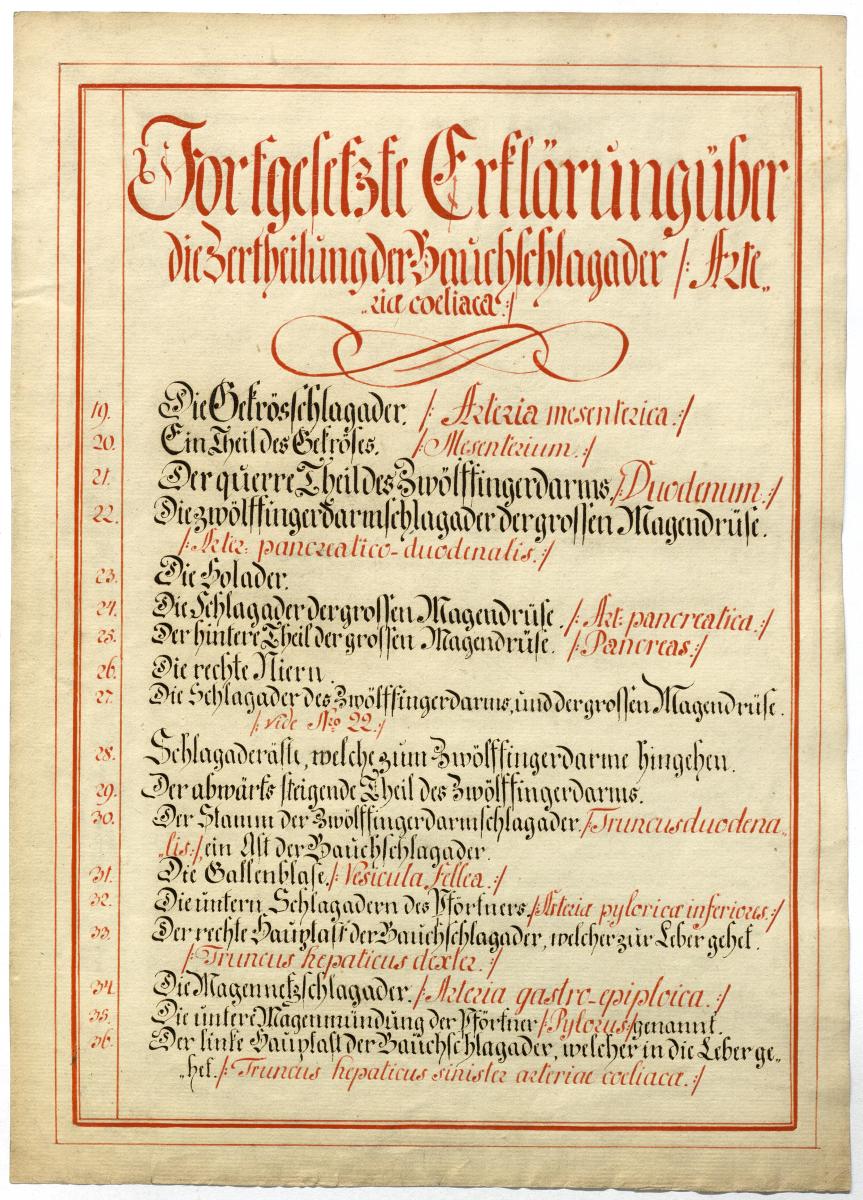 Fortgesetzte Erklärung über
die Zertheilung der Bauchschlagader /: Arte„
„riæ coeliacæ :/
19. Die Gekrösschlagader. /: Arteria mesenterica :/
20. Ein Theil des Gekröses. /: Mesenterium :/
21. Der querre Theil des Zwölffingerdarms /: Duodenum :/
22. Die zwölffingerdarmschlagader der grossen Magendrüse.
/: Arter: pancreatico-duodenalis :/
23. Die Holader.
24. Die Schlagader der grossen Magendrüse. /: Art: pancreatica :/
25. Der hintere Theil der grossen Magendrüse. /: Pancreas :/
26. Die rechte Niern.
27. Die Schlagader des Zwölffingerdarms, und der grossen Magendrüse.
/: vide Nro 22 :/
28. Schlagaderäste, welche zum Zwölffingerdarme hingehen.
29. Der abwärts steigende Theil des Zwölffingerdarms.
30. Der Stamm der Zwölffingerdarmschlagader /: Truncus duodena„
„lis :/, ein Ast der Bauchschlagader.
31. Die Gallenblase /: Vesicula fellea :/
32. Die untern Schlagadern des Pförtners /: Arteria pyloricæ inferiores :/
33. Der rechte Hauptast der Bauchschlagader, welcher zur Leber gehet.
/: Truncus hepaticus dexter :/
34. Die Magennetzschlagader. /: Arteria gastro-epiploica :/
35. Die untere Magenmündung der Pförtner /: Pylorus :/ genannt.
36. Der linke Hauptast der Bauchschlagader, welcher in die Leber ge„
„het. /: Truncus hepaticus sinister arteriae coeliacæ :/